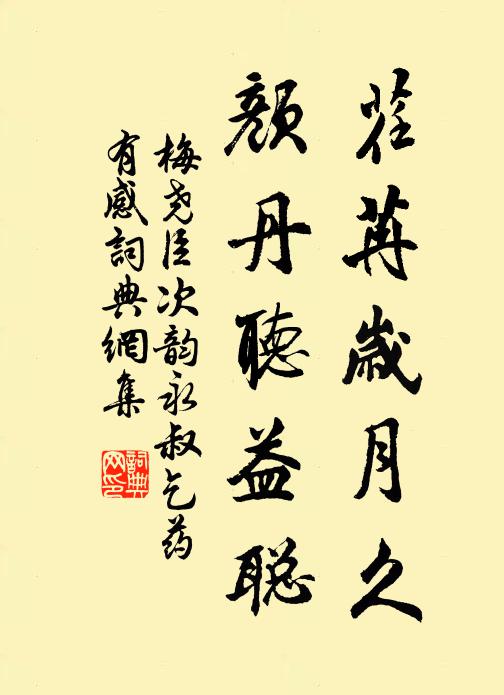 荏苒歲月久
顏丹聽益聰
梅堯臣次韵永叔乞药
有感詞典網集
詞典网印